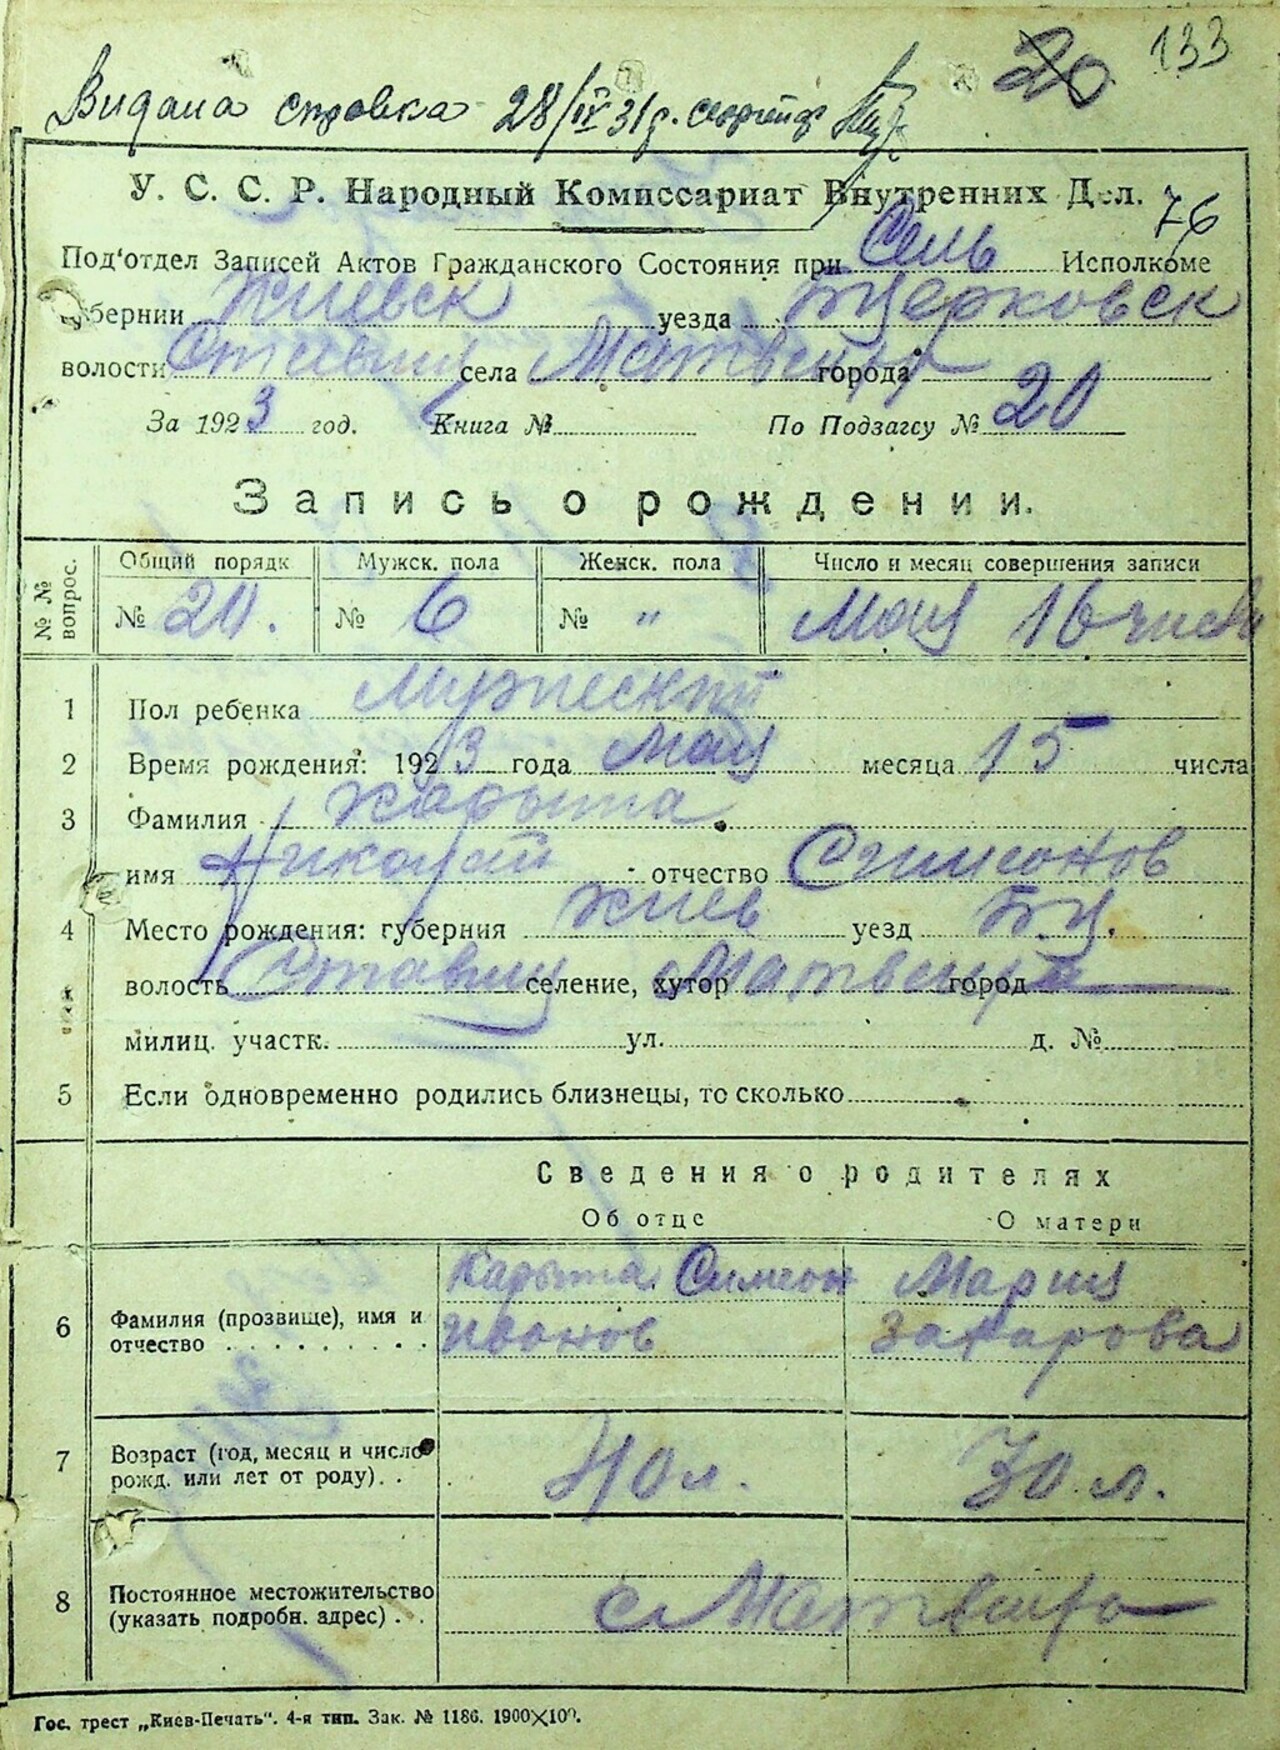 20 133
Видана справка 28/IV 31 р.
У. С. С. Р. Народный Комиссариат Внутренних Дел.
76
Под'отдел Записей Актов Гражданского Состояния при Сель Исполкоме
губернии Киевск уезда БЦерковск
волости Ставищ села Матвеиха города —
За 1923 год. Книга № По Подзагсу № 20
Запись о рождении.
№ № вопрос. Общий порядк Мужск. пола Женск. пола Число и месяц совершения записи
№ 20. № 6 № " Мая 16 числа
1 Пол ребенка Мужеский
2 Время рождения: 1923 года Мая месяца 15 числа
3 Фамилия Карыта
имя Николай отчество Симеонов
4 Место рождения: губерния Киев уезд Б.Ц.
волость Ставищ селение, хутор Матвеиха город —
милиц. участк. ул. д. №
5 Если одновременно родились близнецы, то сколько
Сведения о родителях
Об отце О матери
Карыта Симеон Мария
6 Фамилия (прозвище), имя и отчество Иванов Захарова
7 Возраст (год, месяц и число рожд. или лет от роду). . 40 л. 30 л.
8 Постоянное местожительство (указать подробн. адрес) . . с Матвеиха
Гос. трест „Киев-Печать“. 4-я тип. Зак. № 1186. 1900×100.